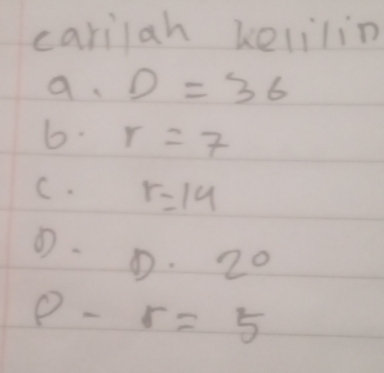 carilah kelilin
a. D = 36
b. r = 7
c. r=14
D. D. 20
e - r = 5